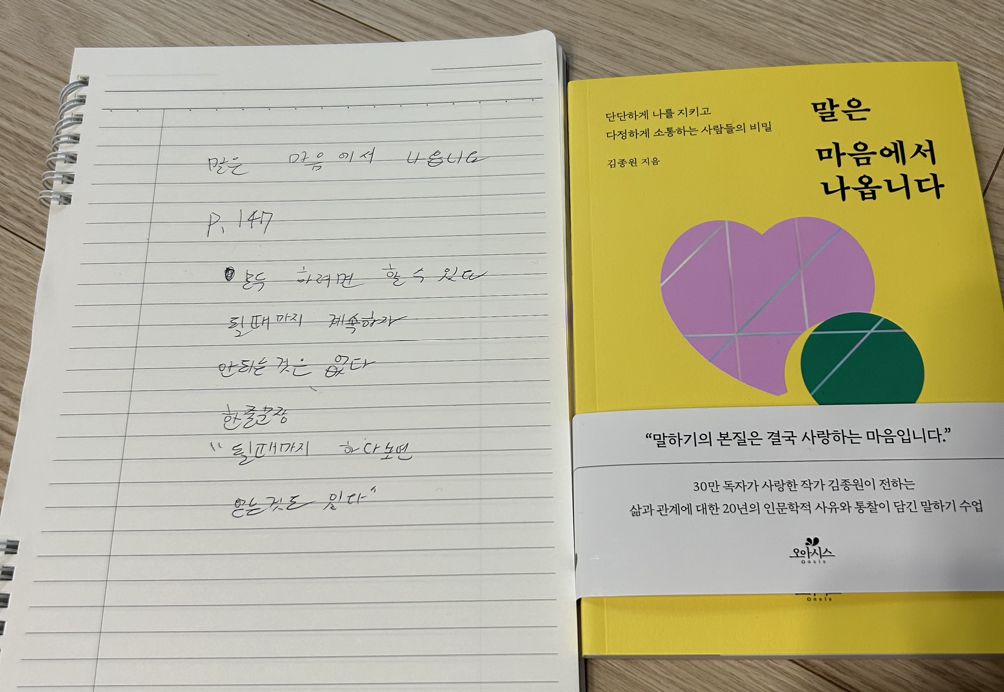 말은 마음에서 나옵니다
P. 147
모두 하려면 할 수 있다
될때까지 계속하자
안되는것은 없다
한줄문장
"될때까지 하다보면
얻는것도 있다"
단단하게 나를 지키고
다정하게 소통하는 사람들의 비밀
김종원 지음
말은
마음에서
나옵니다
"말하기의 본질은 결국 사랑하는 마음입니다."
30만 독자가 사랑한 작가 김종원이 전하는
삶과 관계에 대한 20년의 인문학적 사유와 통찰이 담긴 말하기 수업
오아시스
Oasis
Oasis